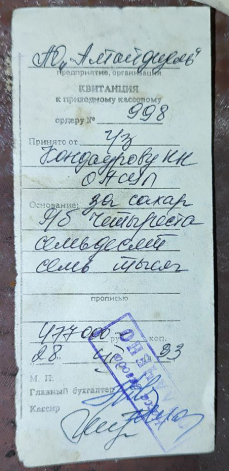 АО "Алтайдизель"
предприятие, организация
КВИТАНЦИЯ
к приходному кассовому
ордеру № 998
Принято от
Кондаурову
Основание: за сахар
Четыреста
семьдесят
семь тысяч
прописью
477000 руб. коп.
28 93
М. П.
Главный бухгалтер
Кассир